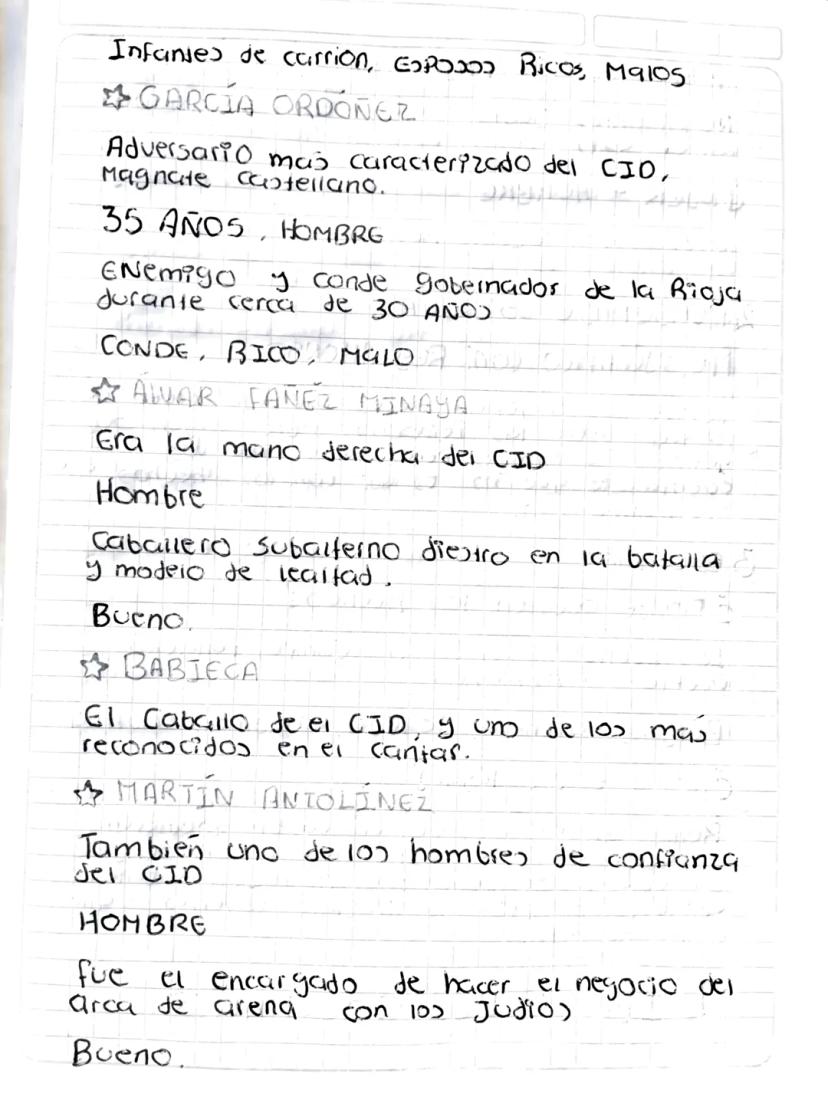 Infantes de carrion, Esposos Ricos, Malos
☆ GARCÍA ORDÓÑEZ
Adversario mas caracterizado del CID,
Magnate castellano.
35 AÑOS, HOMBRE
ENemigo y conde gobernador de la Rioja
durante cerca de 30 AÑOS
CONDE, RICO, MALO
☆ ALVAR FAÑEZ MINAYA
Era la mano derecha del CID
Hombre
Caballero subalterno diestro en la batalla
y modelo de lealtad.
Bueno.
☆ BABIECA
El Caballo de el CID, y uno de los más
reconocidos en el cantar.
☆ MARTÍN ANTOLÍNEZ
También uno de los hombres de confianza
del CID
HOMBRE
fue el encargado de hacer el negocio del
arca de arena con los Judios
Bueno.